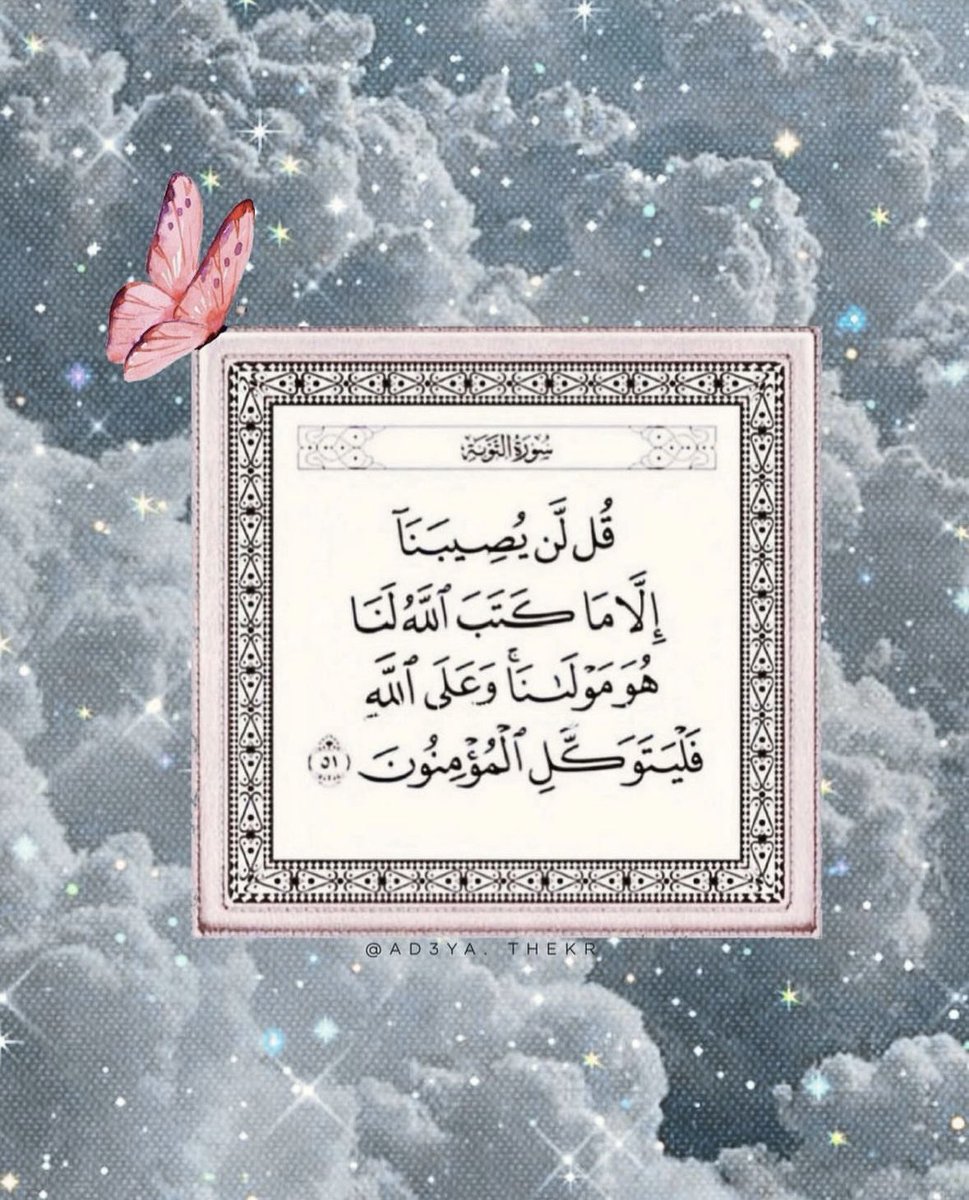 سُورَةُ التَّوْبَةِ
قُل لَّن يُصِيبَنَآ
إِلَّا مَا كَتَبَ ٱللَّهُ لَنَا
هُوَ مَوْلَىٰنَا ۚ وَعَلَى ٱللَّهِ
فَلْيَتَوَكَّلِ ٱلْمُؤْمِنُونَ ﴿٥١﴾
@AD3YA. THEKR